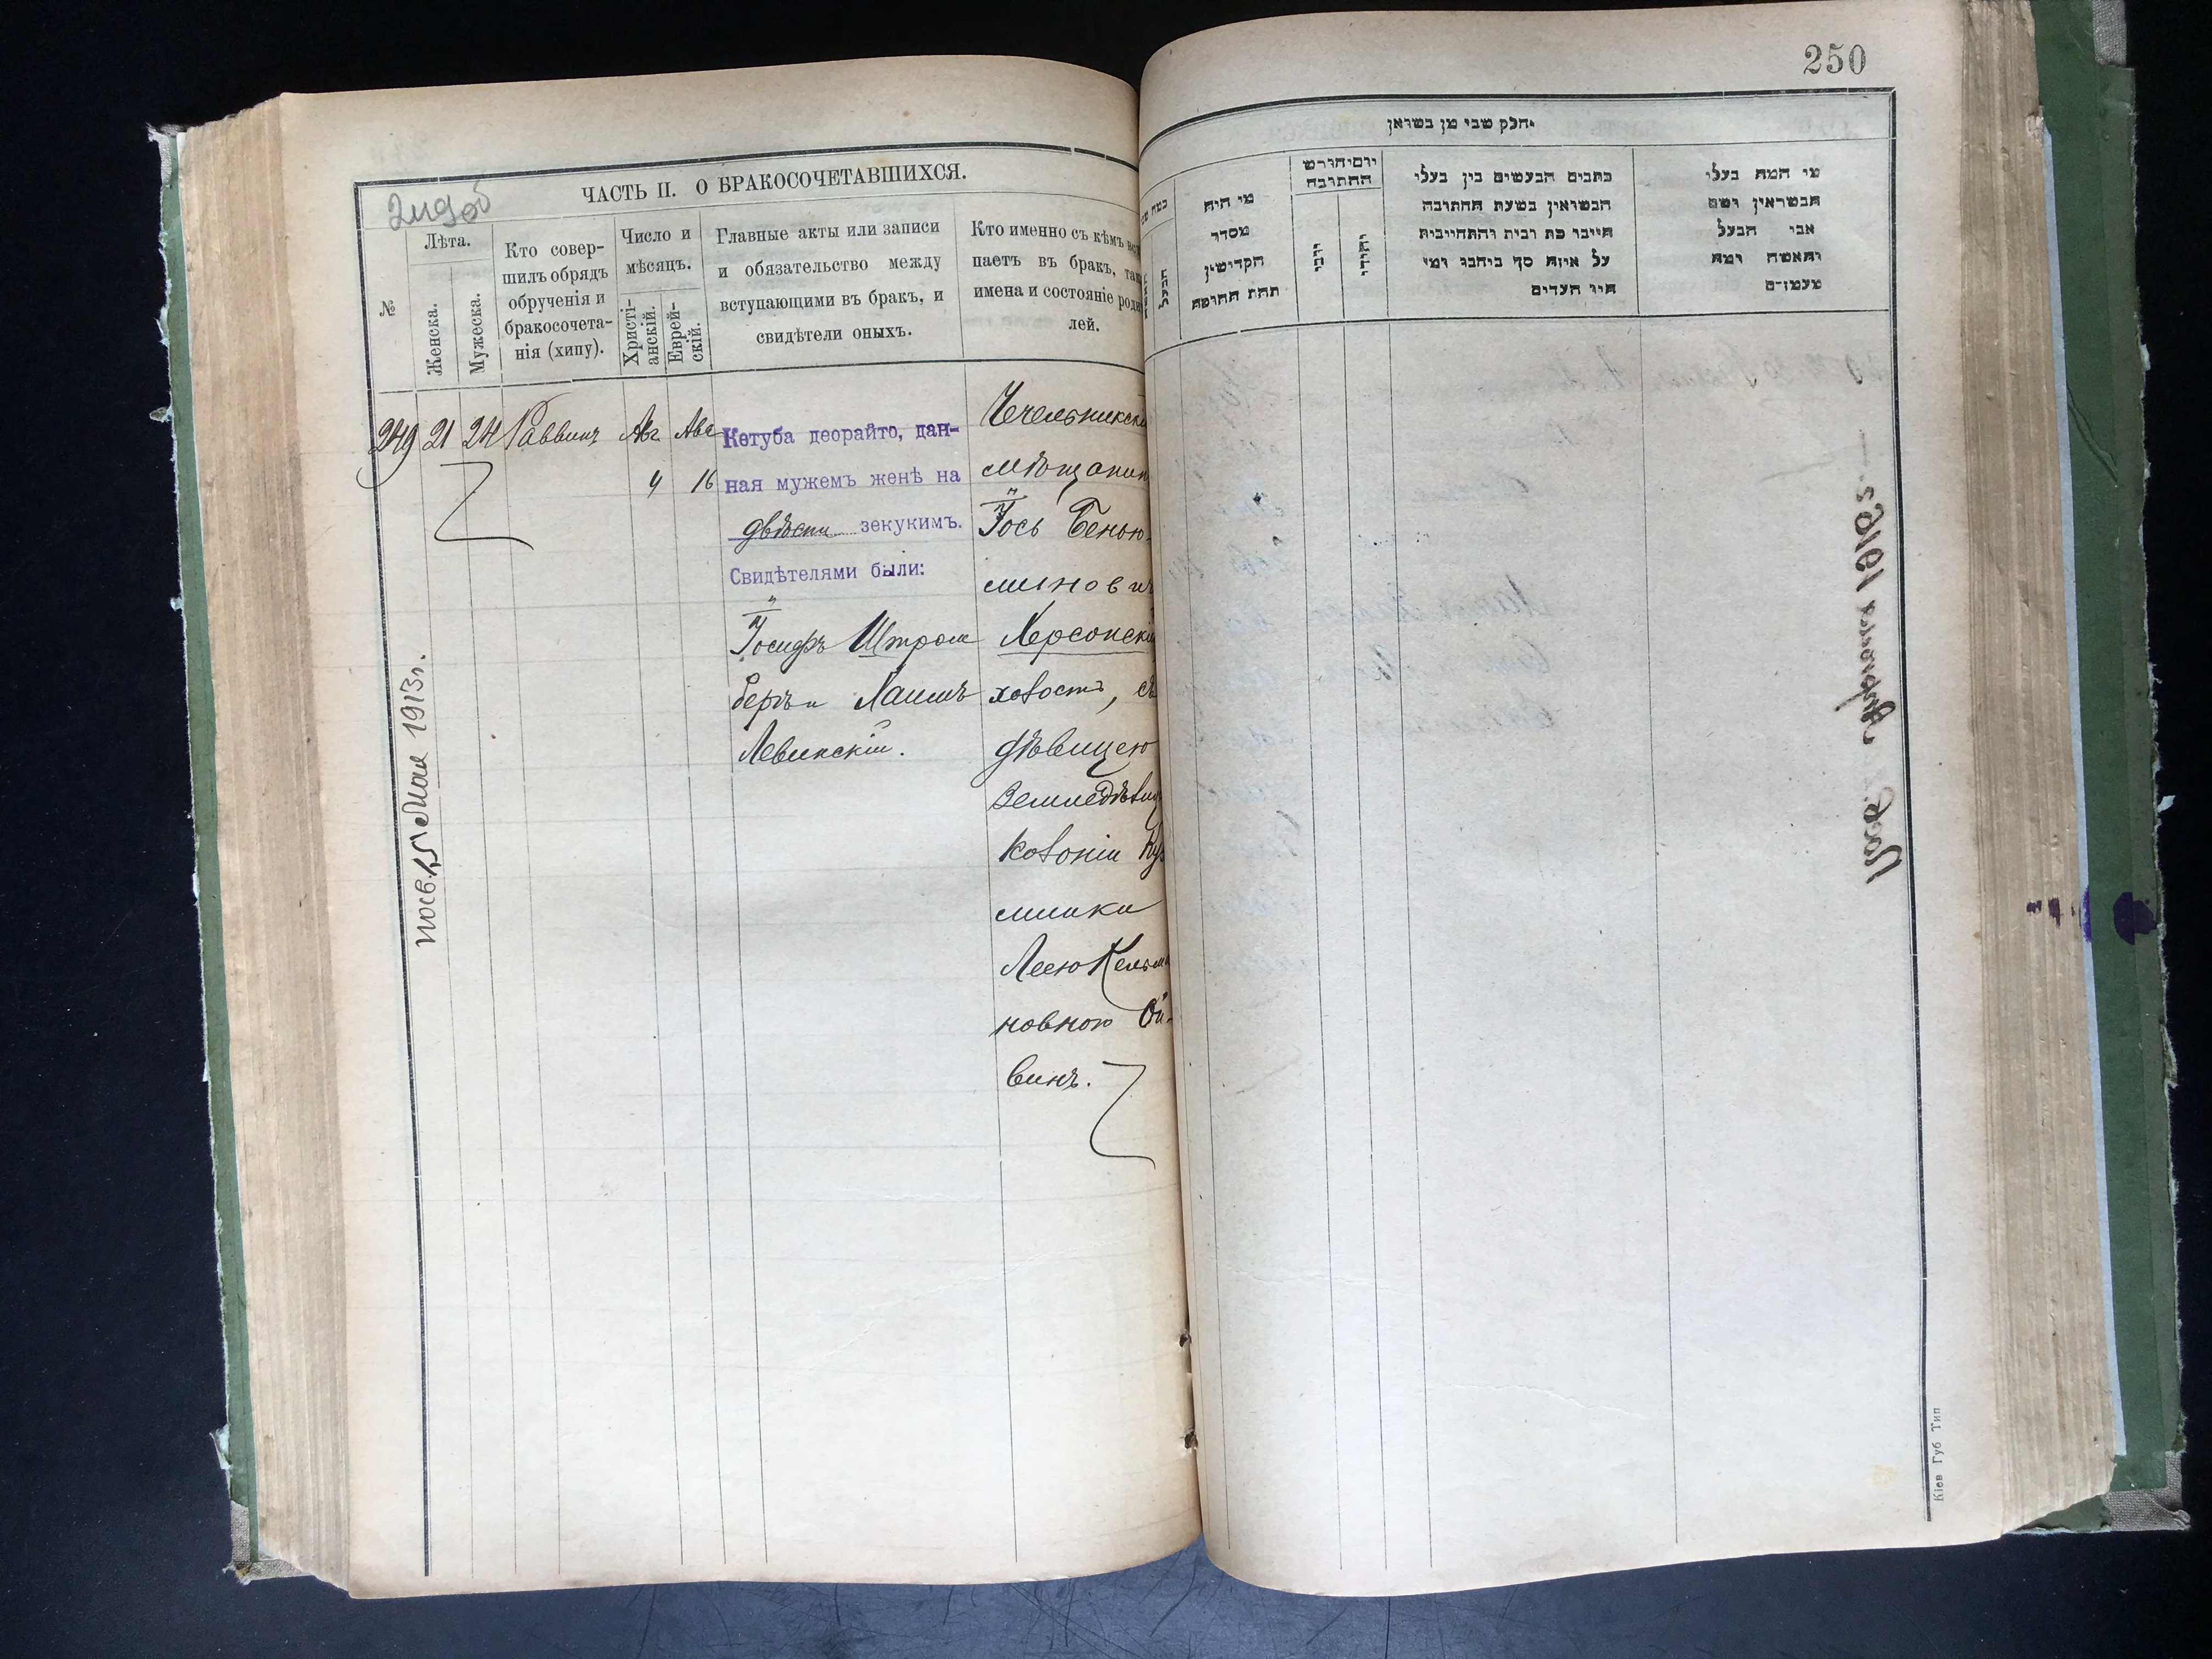 250
2идоб
ЧАСТЬ II. О БРАКОСОЧЕТАВШИХСЯ.
№
Лѣта.
Женска.
Мужеска.
Кто совер-
шилъ обрядъ
обрученія и
бракосочета-
нія (хипу).
Число и
мѣсяцъ.
Христі-
анскій.
Еврей-
скій.
Главные акты или записи
и обязательство между
вступающими въ бракъ, и
свидѣтели оныхъ.
Кто именно съ кѣмъ вс
паетъ въ бракъ, так
имена и состояніе роди
лей.
249 21 24 Раввинъ Авг. Ава
4 16
Кетуба деорайто, дан-
ная мужемъ женѣ на
двѣсти зекукимъ.
Свидѣтелями были:
Іосифъ Штром
бергъ и Хаимъ
Левинскій.
Чечельникскі
мѣщанин
Іось Бенью-
минович
Херсонскі
холостъ, съ
дѣвицею
земледѣл
колоніи Ку
минки
Леею Кельма
новною Ой-
винъ.
пов. 15 Мая 1913 г.
חלק שני מן נשואין
הבעל
מי היה
מסדר
הקדושין
תחת החופה
יום וחורש
החתונה
נוצרי
יהודי
כתבים הנעשים בין בעלי
הנשואין בשעת החתונה
היינו כת ובית והתחייבות
על איזה סך ביחבו ומי
היו העדים
מי המה בעלי
הנשואין ושם
אבי הבעל
והאשה ומה
מעמדם
Кіев Губ Тип